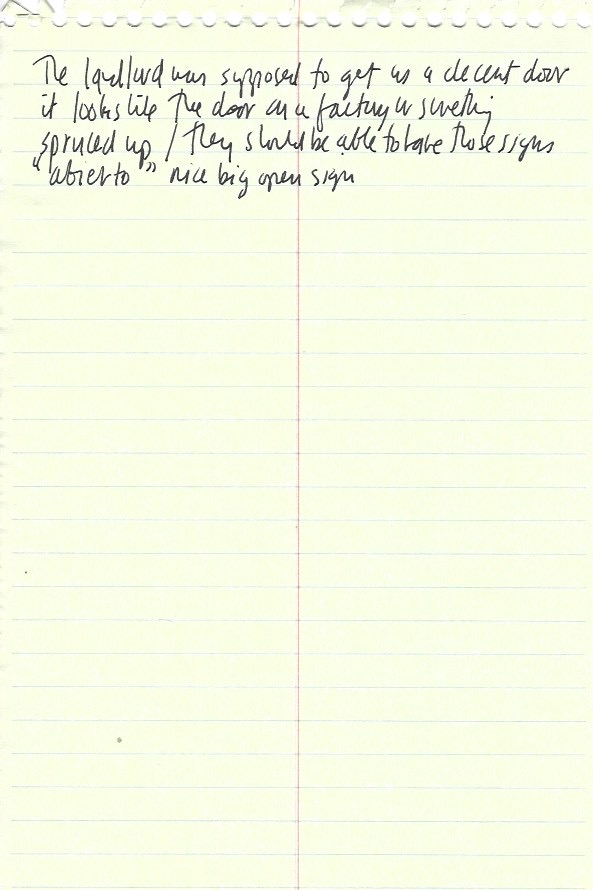 The landlord was supposed to get us a decent door
it looks like the door on a factory or something
spruced up / they should be able to have those signs
"abierto" nice big open sign